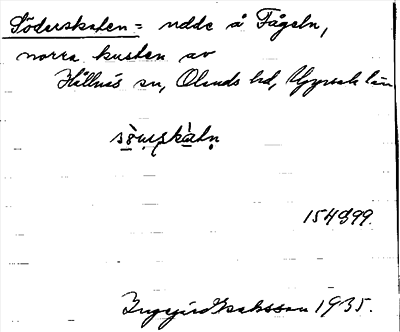 Söderskaten = udde å Fågeln,
norra kusten av
Hållnäs sn, Olands hd, Uppsala län
154999.
Ingegerd Isaksson 1935.